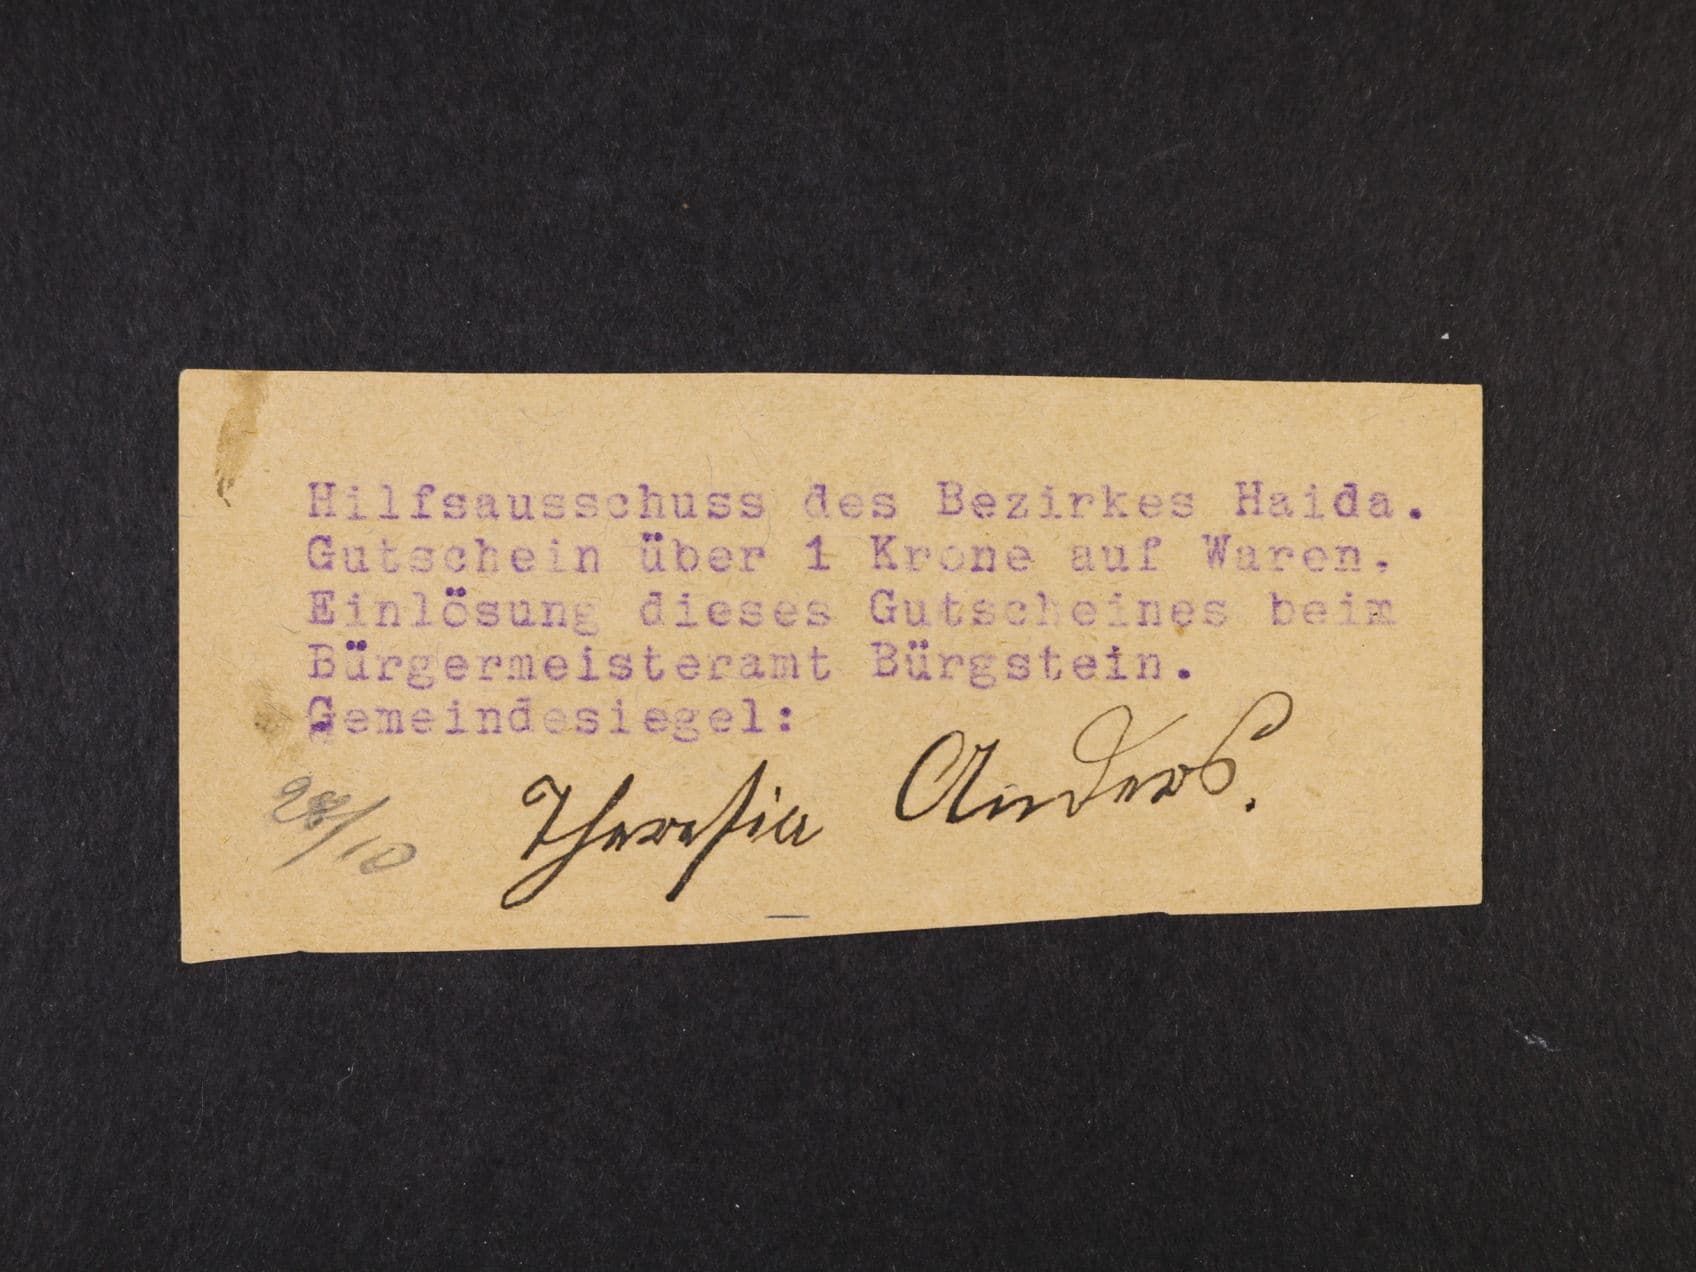 Hilfsausschuss des Bezirkes Haida.
Gutschein über 1 Krone auf Waren.
Einlösung dieses Gutscheines beim
Bürgermeisteramt Bürgstein.
Gemeindesiegel:
Theresia Anders.
/10